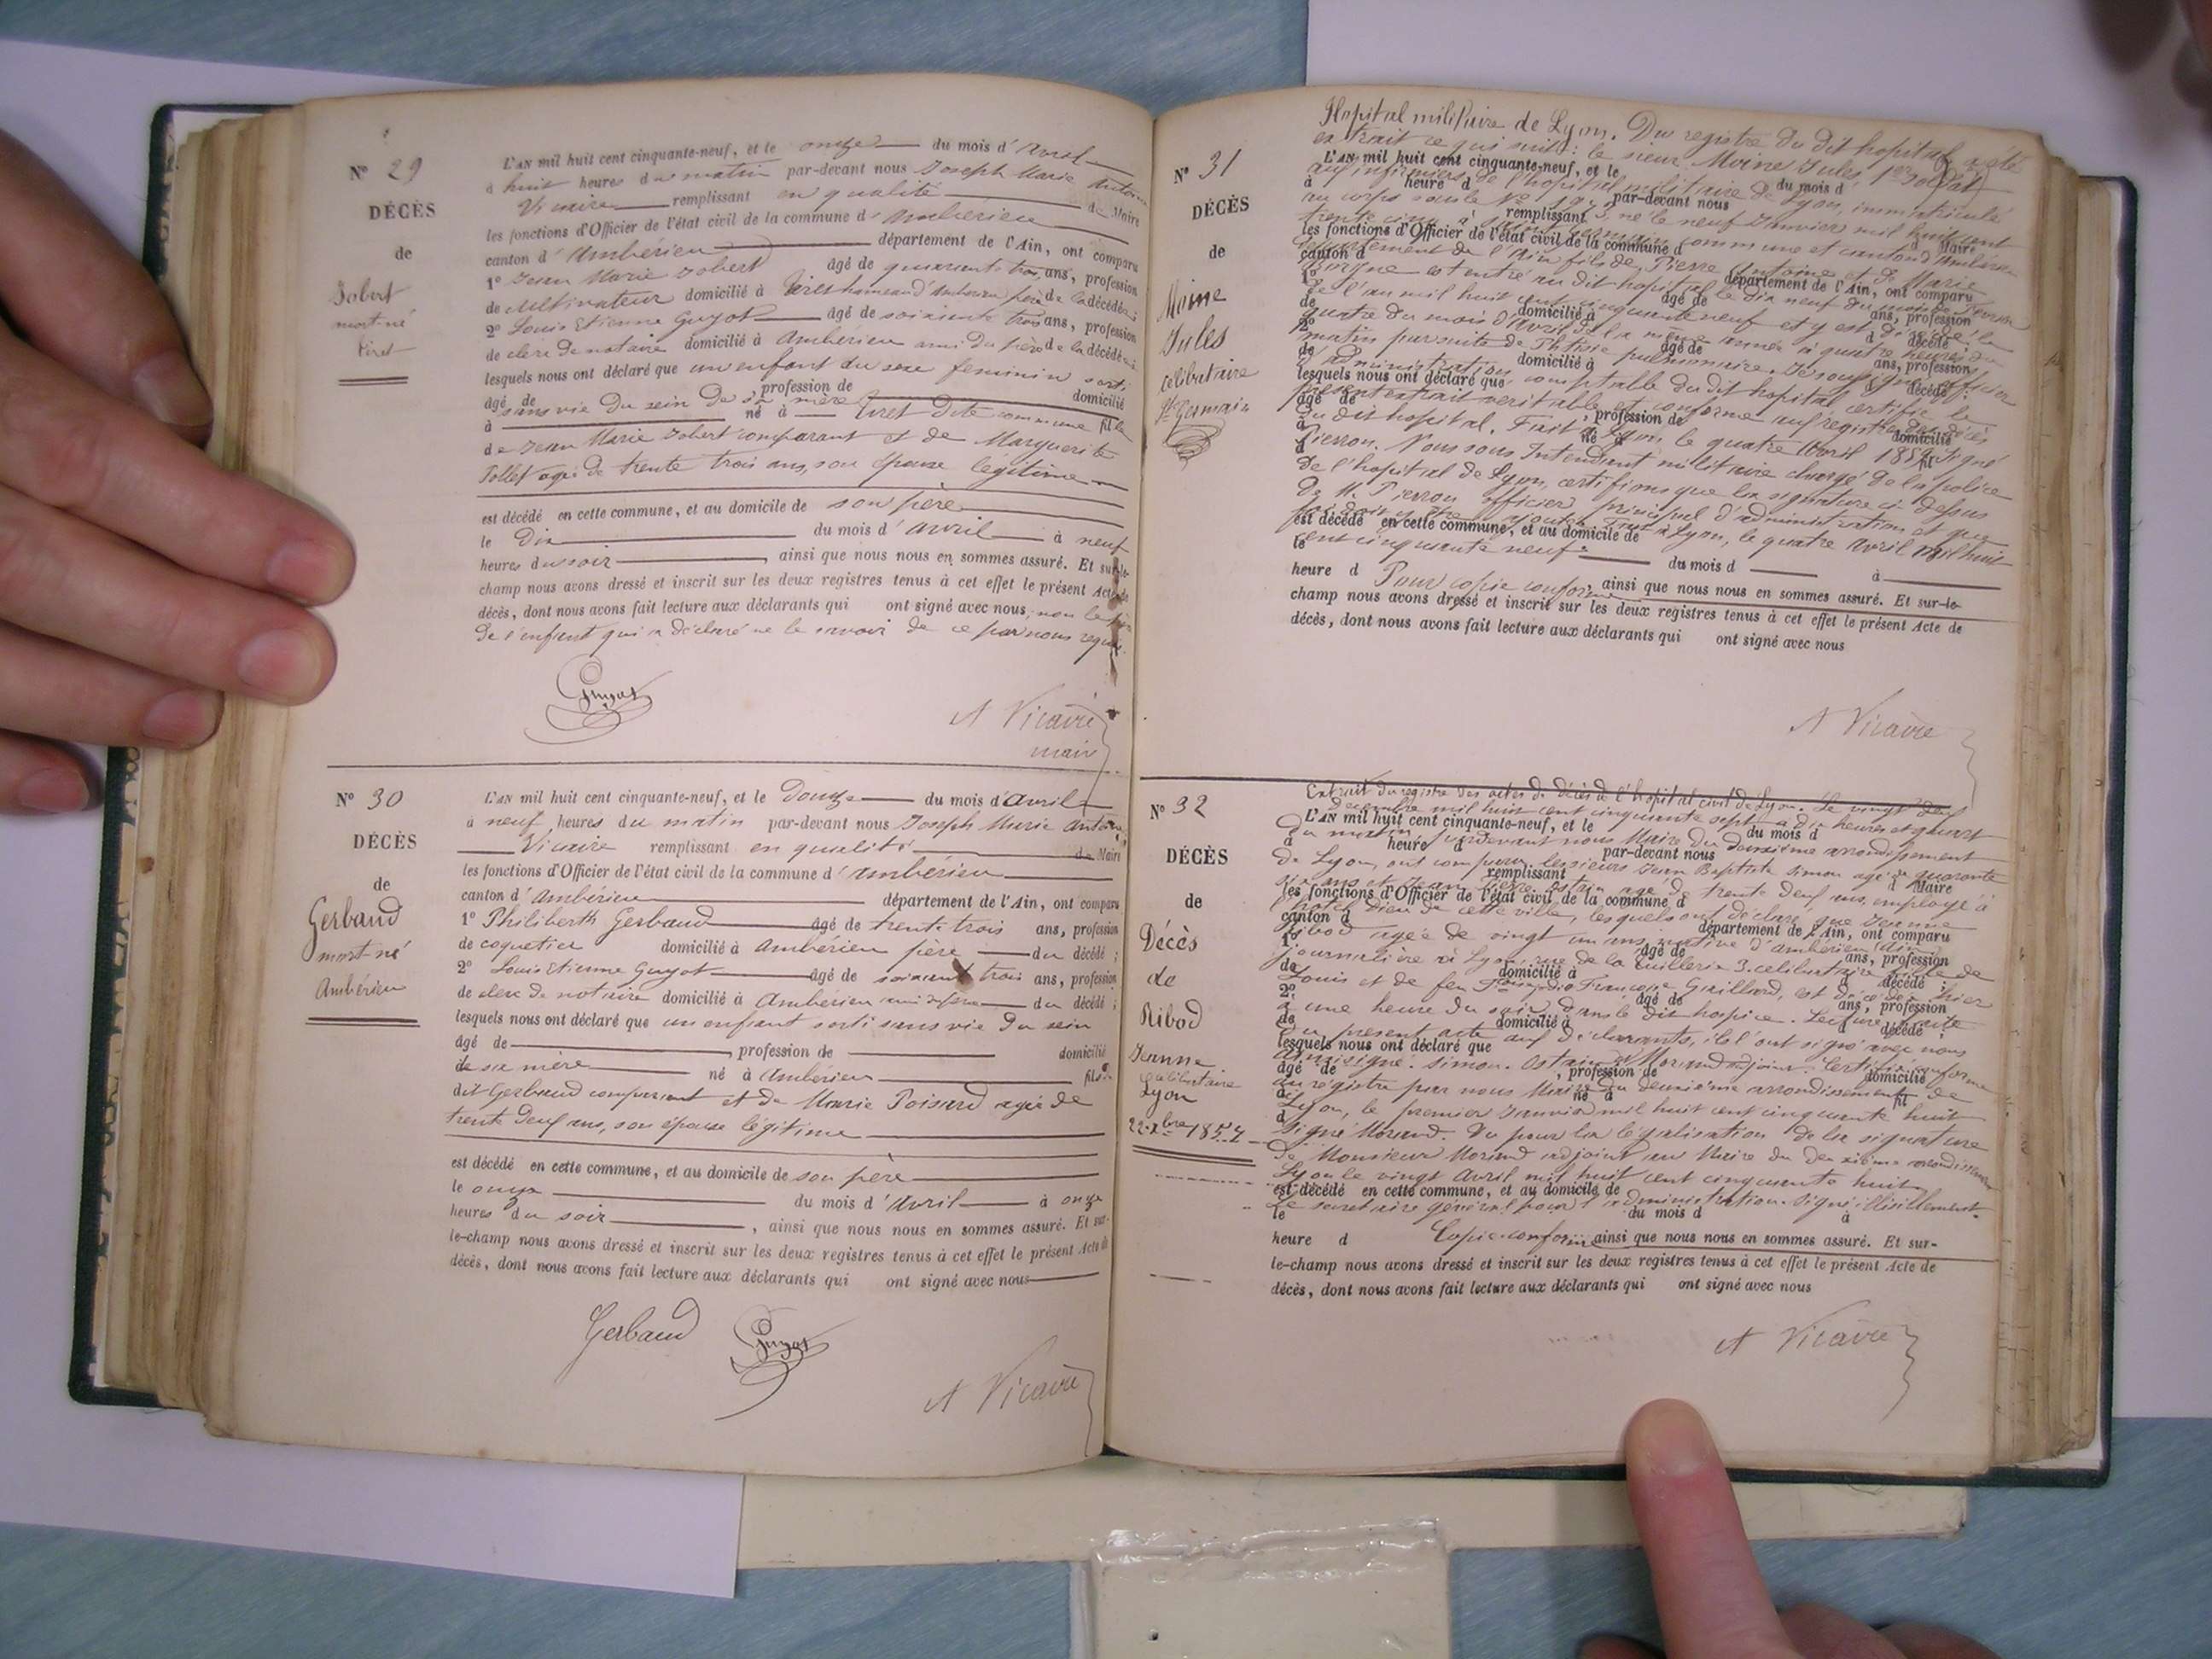 N° 29
DÉCÈS
de
Jobert
mort né
Tiret
L'AN mil huit cent cinquante-neuf, et le onze du mois d'avril
à huit heures du matin par-devant nous Joseph Marie Antoine
Vicaire remplissant en qualité de Maire
les fonctions d'Officier de l'état civil de la commune d'Ambérieu
canton d'Ambérieu département de l'Ain, ont comparu
1° Jean Marie Jobert âgé de quarante trois ans, profession
de cultivateur domicilié à Tiret hameau d'Ambérieu père de la décédée;
2° Louis Etienne Guyot âgé de soixante trois ans, profession
de clerc de notaire domicilié à Ambérieu ami du père de la décédée;
lesquels nous ont déclaré que un enfant du sexe feminin sorti
âgé de sans vie du sein de sa mère profession de domicilié
à né à Tiret dite commune fille
de Jean Marie Jobert comparant et de Marguerite
Tollet agée de trente trois ans, son épouse légitime
est décédé en cette commune, et au domicile de son père
le dix du mois d'avril à neuf
heures du soir, ainsi que nous nous en sommes assuré. Et sur-le-
champ nous avons dressé et inscrit sur les deux registres tenus à cet effet le présent Acte de
décès, dont nous avons fait lecture aux déclarants qui ont signé avec nous, non le père
de l'enfant qui a déclaré ne le savoir de ce par nous requis.
Guyot
A Vicaire
maire
N° 30
DÉCÈS
de
Gerbaud
mort né
Ambérieu
L'AN mil huit cent cinquante-neuf, et le douze du mois d'avril
à neuf heures du matin par-devant nous Joseph Marie Antoine
Vicaire remplissant en qualité de Maire
les fonctions d'Officier de l'état civil de la commune d'Ambérieu
canton d'Ambérieu département de l'Ain, ont comparu
1° Philiberth Gerbaud âgé de trente trois ans, profession
de coquetier domicilié à Ambérieu père du décédé;
2° Louis Etienne Guyot âgé de soixante trois ans, profession
de clerc de notaire domicilié à Ambérieu ami du père du décédé;
lesquels nous ont déclaré que un enfant sorti sans vie du sein
âgé de, profession de domicilié
de sa mère né à Ambérieu fils
dit Gerbaud comparant et de Marie Poisard agée de
trente deux ans, son épouse légitime
est décédé en cette commune, et au domicile de son père
le onze du mois d'avril à onze
heures du soir, ainsi que nous nous en sommes assuré. Et sur-
le-champ nous avons dressé et inscrit sur les deux registres tenus à cet effet le présent Acte de
décès, dont nous avons fait lecture aux déclarants qui ont signé avec nous
Gerbaud Guyot
A Vicaire
N° 31
DÉCÈS
de
Moine
Jules
célibataire
St Germain
Hopital militaire de Lyon. Du registre du dit hopital a été
extrait ce qui suit: le sieur Moine Jules 1er soldat
L'AN mil huit cent cinquante-neuf, et le du mois d
aux infirmiers de l'hopital militaire de Lyon, immatriculé
à heure d par-devant nous
au corps sous le N° né le neuf Janvier mil huit cent
remplissant d Maire
trente cinq à St Germain commune et canton d'Ambérieu
les fonctions d'Officier de l'état civil de la commune d
département de l'Ain fils de Pierre Antoine et de Marie
canton d département de l'Ain, ont comparu
est entré au dit hopital le dix neuf du mois de Février
1° âgé de ans, profession
de l'an mil huit cent cinquante neuf et y est décédé le
de domicilié à d décédé;
quatre du mois d'Avril de la même année à quatre heures du
2° âgé de ans, profession
matin par suite de Phtisie pulmonaire. Je soussigné officier
de domicilié à d décédé;
d'administration comptable du dit hopital certifie le
lesquels nous ont déclaré que
présent extrait veritable et conforme aux régistres des décès
âgé de, profession de domicilié
du dit hopital. Fait à Lyon, le quatre Avril 1859. Signé
à né à fil
Pierron. Nous sous Intendant militaire chargé de la police
de l'hopital de Lyon, certifions que la signature ci-dessus
de M. Pierron officier principal d'administration et que
foi doit y être ajoutée. Fait à Lyon, le quatre avril mil huit
est décédé en cette commune, et au domicile de
cent cinquante neuf.
le du mois d à
heure d Pour copie conforme, ainsi que nous nous en sommes assuré. Et sur-le-
champ nous avons dressé et inscrit sur les deux registres tenus à cet effet le présent Acte de
décès, dont nous avons fait lecture aux déclarants qui ont signé avec nous
A Vicaire
N° 32
DÉCÈS
de
Décès
de
Ribod
Jeanne
célibataire
Lyon
22 Xbre 1857
Extrait du registre des actes de décès de l'hopital civil de Lyon. Le vingt deux
décembre mil huit cent cinquante sept à dix heures et quart
L'AN mil huit cent cinquante-neuf, et le du mois d
du matin pardevant nous Maire du deuxième arrondissement
à heure d par-devant nous
de Lyon, ont comparu les sieurs Jean Baptiste Simon agé de quarante
remplissant d Maire
six ans et Jean Pierre Ostain agé de trente deux ans, employé à
les fonctions d'Officier de l'état civil de la commune d
l'hotel Dieu de cette ville, lesquels ont déclaré que Jeanne
canton d département de l'Ain, ont comparu
Ribod agée de vingt un ans, native d'ambérieu (Ain)
1° âgé de ans, profession
journalière à Lyon, rue de la Tuillerie 3. célibataire fille de
de domicilié à d décédé;
Louis et de feu Françoise Guilliard, est décédée hier
2° âgé de ans, profession
à une heure du soir dans le dit hospice. Lecture faite
de domicilié à d décédé
du present acte aux déclarants, ils l'ont signé avec nous
lesquels nous ont déclaré que
Ainsi signé. Simon. Ostain et Morand adjoint. Certifié conforme
âgé de, profession de domicilié
au régistre par nous Maire du deuxième arrondissement de
à né à fil
Lyon, le premier Janvier mil huit cent cinquante huit
d
Signé Morand. Vu pour la légalisation de la signature
de Monsieur Morand adjoint au Maire du deuxième arrondissement
Lyon le vingt Avril mil huit cent cinquante huit
est décédé en cette commune, et au domicile de
Le secretaire général pour l'administration. Signé: illisiblement.
le du mois d à
heure d Copie conforme ainsi que nous nous en sommes assuré. Et sur-
le-champ nous avons dressé et inscrit sur les deux registres tenus à cet effet le présent Acte de
décès, dont nous avons fait lecture aux déclarants qui ont signé avec nous
A Vicaire